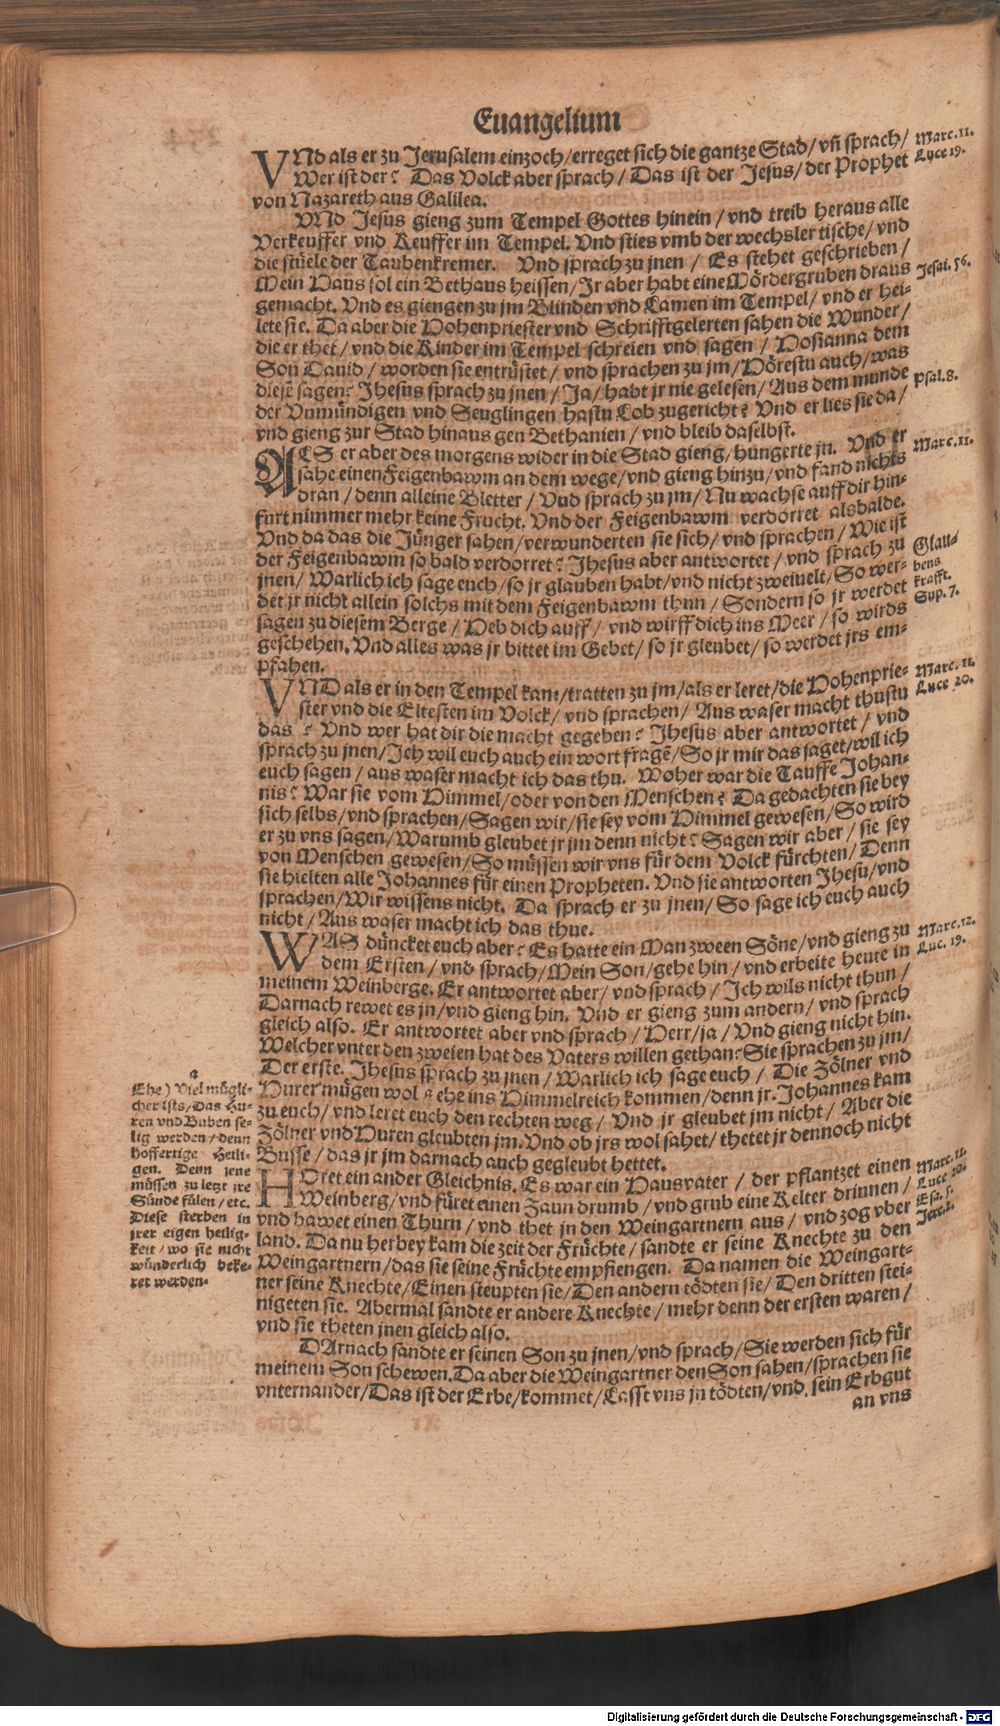 Euangelium
VNd als er zu Jerusalem einzoch/erreget sich die gantze Stad/vn̄ sprach/
Wer ist der? Das Volck aber sprach/Das ist der Jesus/der Prophet
von Nazareth aus Galilea.
Marc. 11.
Luce 19.
VNd Jesus gieng zum Tempel Gottes hinein/vnd treib heraus alle
Verkeuffer vnd Keuffer im Tempel. Vnd sties vmb der wechsler tische/vnd
die stüele der Taubenkremer. Vnd sprach zu jnen/Es stehet geschrieben/
Mein Haus sol ein Bethaus heissen/Jr aber habt eine Mördergruben draus
gemacht. Vnd es giengen zu jm Blinden vnd Lamen im Tempel/vnd er hei-
lete sie. Da aber die Hohenpriester vnd Schrifftgelerten sahen die Wunder/
die er thet/vnd die Kinder im Tempel schreien vnd sagen/Hosianna dem
Son Dauid/worden sie entrüstet/vnd sprachen zu jm/Hörestu auch/was
diese sagen? Jhesus sprach zu jnen/Ja/habt jr nie gelesen/Aus dem munde
der Vnmündigen vnd Seuglingen hastu Lob zugericht? Vnd er lies sie da/
vnd gieng zur Stad hinaus gen Bethanien/vnd bleib daselbst.
Jesai. 56.
Psal. 8.
ALS er aber des morgens wider in die Stad gieng/hungerte jn. Vnd er
sahe einen Feigenbawm an dem wege/vnd gieng hinzu/vnd fand nichts
dran/denn alleine Bletter/Vnd sprach zu jm/Nu wachse auff dir hin-
furt nimmer mehr keine Frucht. Vnd der Feigenbawm verdorret alsbalde.
Vnd da das die Jünger sahen/verwunderten sie sich/vnd sprachen/Wie ist
der Feigenbawm so bald verdorret? Jhesus aber antwortet/vnd sprach zu
jnen/Warlich ich sage euch/so jr glauben habt/vnd nicht zweiuelt/So wer-
det jr nicht allein solchs mit dem Feigenbawm thun/Sondern so jr werdet
sagen zu diesem Berge/Heb dich auff/vnd wirff dich ins Meer/so wirds
geschehen. Vnd alles was jr bittet im Gebet/so jr gleubet/so werdet jrs em-
pfahen.
Marc. 11.
Glau-
bens
krafft.
Sup. 7.
VND als er in den Tempel kam/tratten zu jm/als er leret/die Hohenprie-
ster vnd die Eltesten im Volck/vnd sprachen/Aus waser macht thustu
das? Vnd wer hat dir die macht gegeben? Jhesus aber antwortet/vnd
sprach zu jnen/Jch wil euch auch ein wort fragē/So jr mir das saget/wil ich
euch sagen/aus waser macht ich das thu. Woher war die Tauffe Johan-
nis? War sie vom Himmel/oder von den Menschen? Da gedachten sie bey
sich selbs/vnd sprachen/Sagen wir/sie sey vom Himmel gewesen/So wird
er zu vns sagen/Warumb gleubet jr jm denn nicht? Sagen wir aber/sie sey
von Menschen gewesen/So müssen wir vns für dem Volck fürchten/Denn
sie hielten alle Johannes für einen Propheten. Vnd sie antworten Jhesu/vnd
sprachen/Wir wissens nicht. Da sprach er zu jnen/So sage ich euch auch
nicht/Aus waser macht ich das thue.
Marc. 11.
Luce 20.
WAS düncket euch aber? Es hatte ein Man zween Söne/vnd gieng zu
dem Ersten/vnd sprach/Mein Son/gehe hin/vnd erbeite heute in
meinem Weinberge. Er antwortet aber/vnd sprach/Jch wils nicht thun/
Darnach rewet es jn/vnd gieng hin. Vnd er gieng zum andern/vnd sprach
gleich also. Er antwortet aber vnd sprach/Herr/ja/Vnd gieng nicht hin.
Welcher vnter den zweien hat des Vaters willen gethan? Sie sprachen zu jm/
Der erste. Jhesus sprach zu jnen/Warlich ich sage euch/Die Zölner vnd
Hurer mügen wol a ehe ins Himmelreich kommen/denn jr. Johannes kam
zu euch/vnd leret euch den rechten weg/Vnd jr gleubet jm nicht/Aber die
Zölner vnd Huren gleubten jm. Vnd ob jrs wol sahet/thetet jr dennoch nicht
Busse/das jr jm darnach auch gegleubt hettet.
Marc. 12.
Luc. 19.
a
Ehe) Viel mügli-
cher ists/Das Hu-
ren vnd Buben se-
lig werden/denn
hoffertige Heili-
gen. Denn jene
müssen zu letzt jre
Sünde fülen/etc.
Diese sterben in
jrer eigen heilig-
keit/wo sie nicht
wünderlich beke-
ret werden.
HOret ein ander Gleichnis. Es war ein Hausvater/der pflantzet einen
Weinberg/vnd füret einen Zaun drumb/vnd grub eine Kelter drinnen/
vnd bawet einen Thurn/vnd thet jn den Weingartnern aus/vnd zog vber
land. Da nu herbey kam die zeit der Früchte/sandte er seine Knechte zu den
Weingartnern/das sie seine Früchte empfiengen. Da namen die Weingart-
ner seine Knechte/Einen steupten sie/Den andern tödten sie/Den dritten stei-
nigeten sie. Abermal sandte er andere Knechte/mehr denn der ersten waren/
vnd sie theten jnen gleich also.
Marc. 12.
Luce 20.
Esa. 5.
Jere. 2.
DArnach sandte er seinen Son zu jnen/vnd sprach/Sie werden sich für
meinem Son schewen. Da aber die Weingartner den Son sahen/sprachen sie
vnternander/Das ist der Erbe/kommet/Lasst vns jn tödten/vnd sein Erbgut
an vns
Digitalisierung gefördert durch die Deutsche Forschungsgemeinschaft - DFG